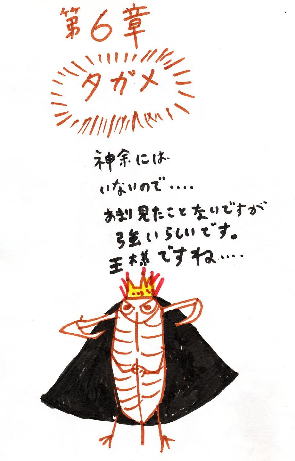 第6章
タガメ
神余には
いないので‥‥
あまり見たことないですが
強いらしいです。
王様ですね‥‥